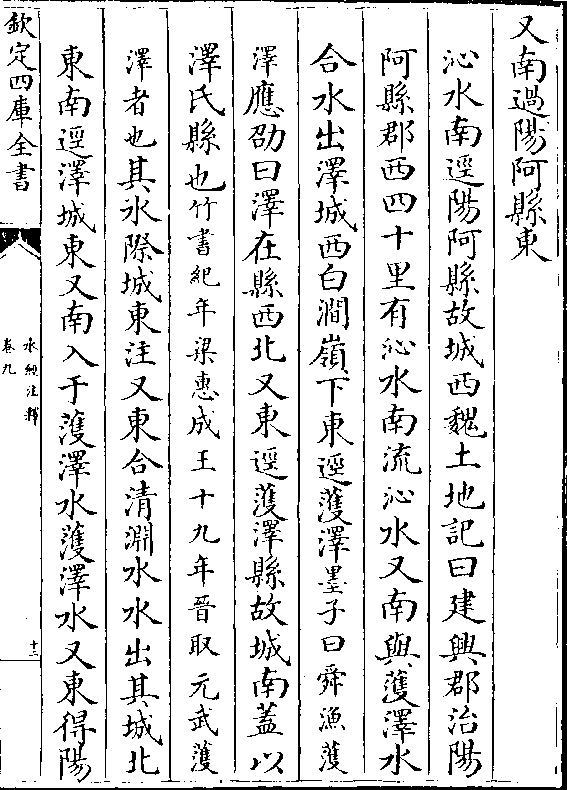 又南過陽阿縣東
沁水南逕陽阿縣故城西魏土地記曰建興郡治陽
阿縣郡西四十里有沁水南流沁水又南與蒦澤水
合水出澤城西白澗嶺下東逕蒦澤墨子曰舜漁蒦
澤應劭曰澤在縣西北又東逕蒦澤縣故城南蓋以
澤氏縣也竹書紀年梁惠成王十九年晉取元武蒦
澤者也其水際城東注又東合清淵水水出其城北
東南逕澤城東又南入于蒦澤水蒦澤水又東得陽
欽定四庫全書
水經注釋
卷九
十三